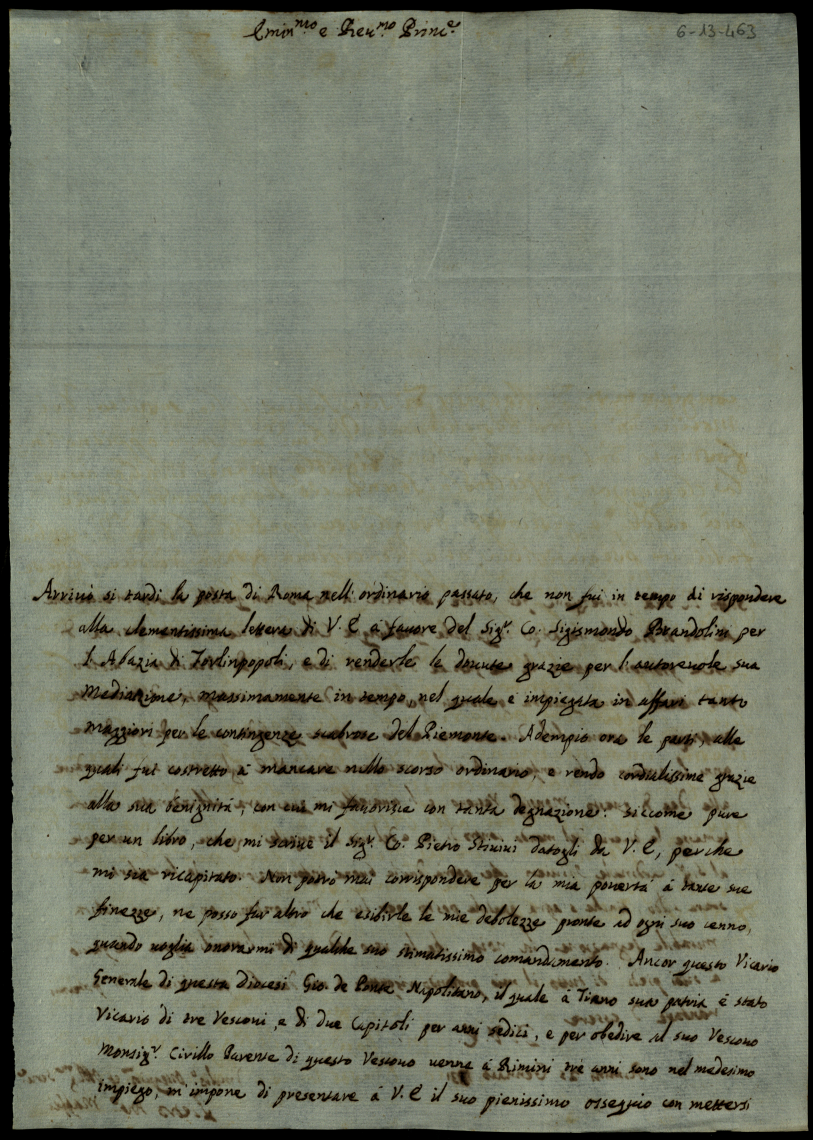 Emin.mo e Reu.mo Princ.e
6-13-463
Arriuò si tardi la posta di Roma nell'ordinario passato, che non fui in tempo di rispondere
alla clementissima lettera di V.E à fauore del Sig.r Co. Sigismondo Brandolini per
l'Abazia di, e di renderle le douute grazie per l'autoreuole sua
mediazione, massimamente in tempo, nel quale è impiegata in affari tanto
maggiori per le contingenze scabrose del Piemonte. Adempio ora le parti, alle
quali fui costretto à mancare nello scorso ordinario, e rendo cordialissime grazie
alla sua benignità, con cui mi fauorisce con tanta degnazione: siccome pure
per un libro, che mi scriue il Sig.r Co. Pietro datogli da V.E, perche
mi sia ricapitato. Non potrò mai corrispondere per la mia pouertà à tante sue
finezze, ne posso far altro che esibirle le mie debolezze pronte ad ogni suo cenno,
quando uoglia onorarmi di qualche suo stimatissimo comandamento. Ancor questo Vicario
Generale di questa Diocesi Gio. de Ponte Napolitano, il quale à Tiano sua patria è stato
Vicario di tre Vescoui, e di due Capitoli per anni sedici, e per obedire al suo Vescouo
Monsig.r Cirillo Parente di questo Vescouo uenne à Rimini tre anni sono nel medesimo
impiego, m'impone di presentare à V.E il suo pienissimo ossequio con mettersi